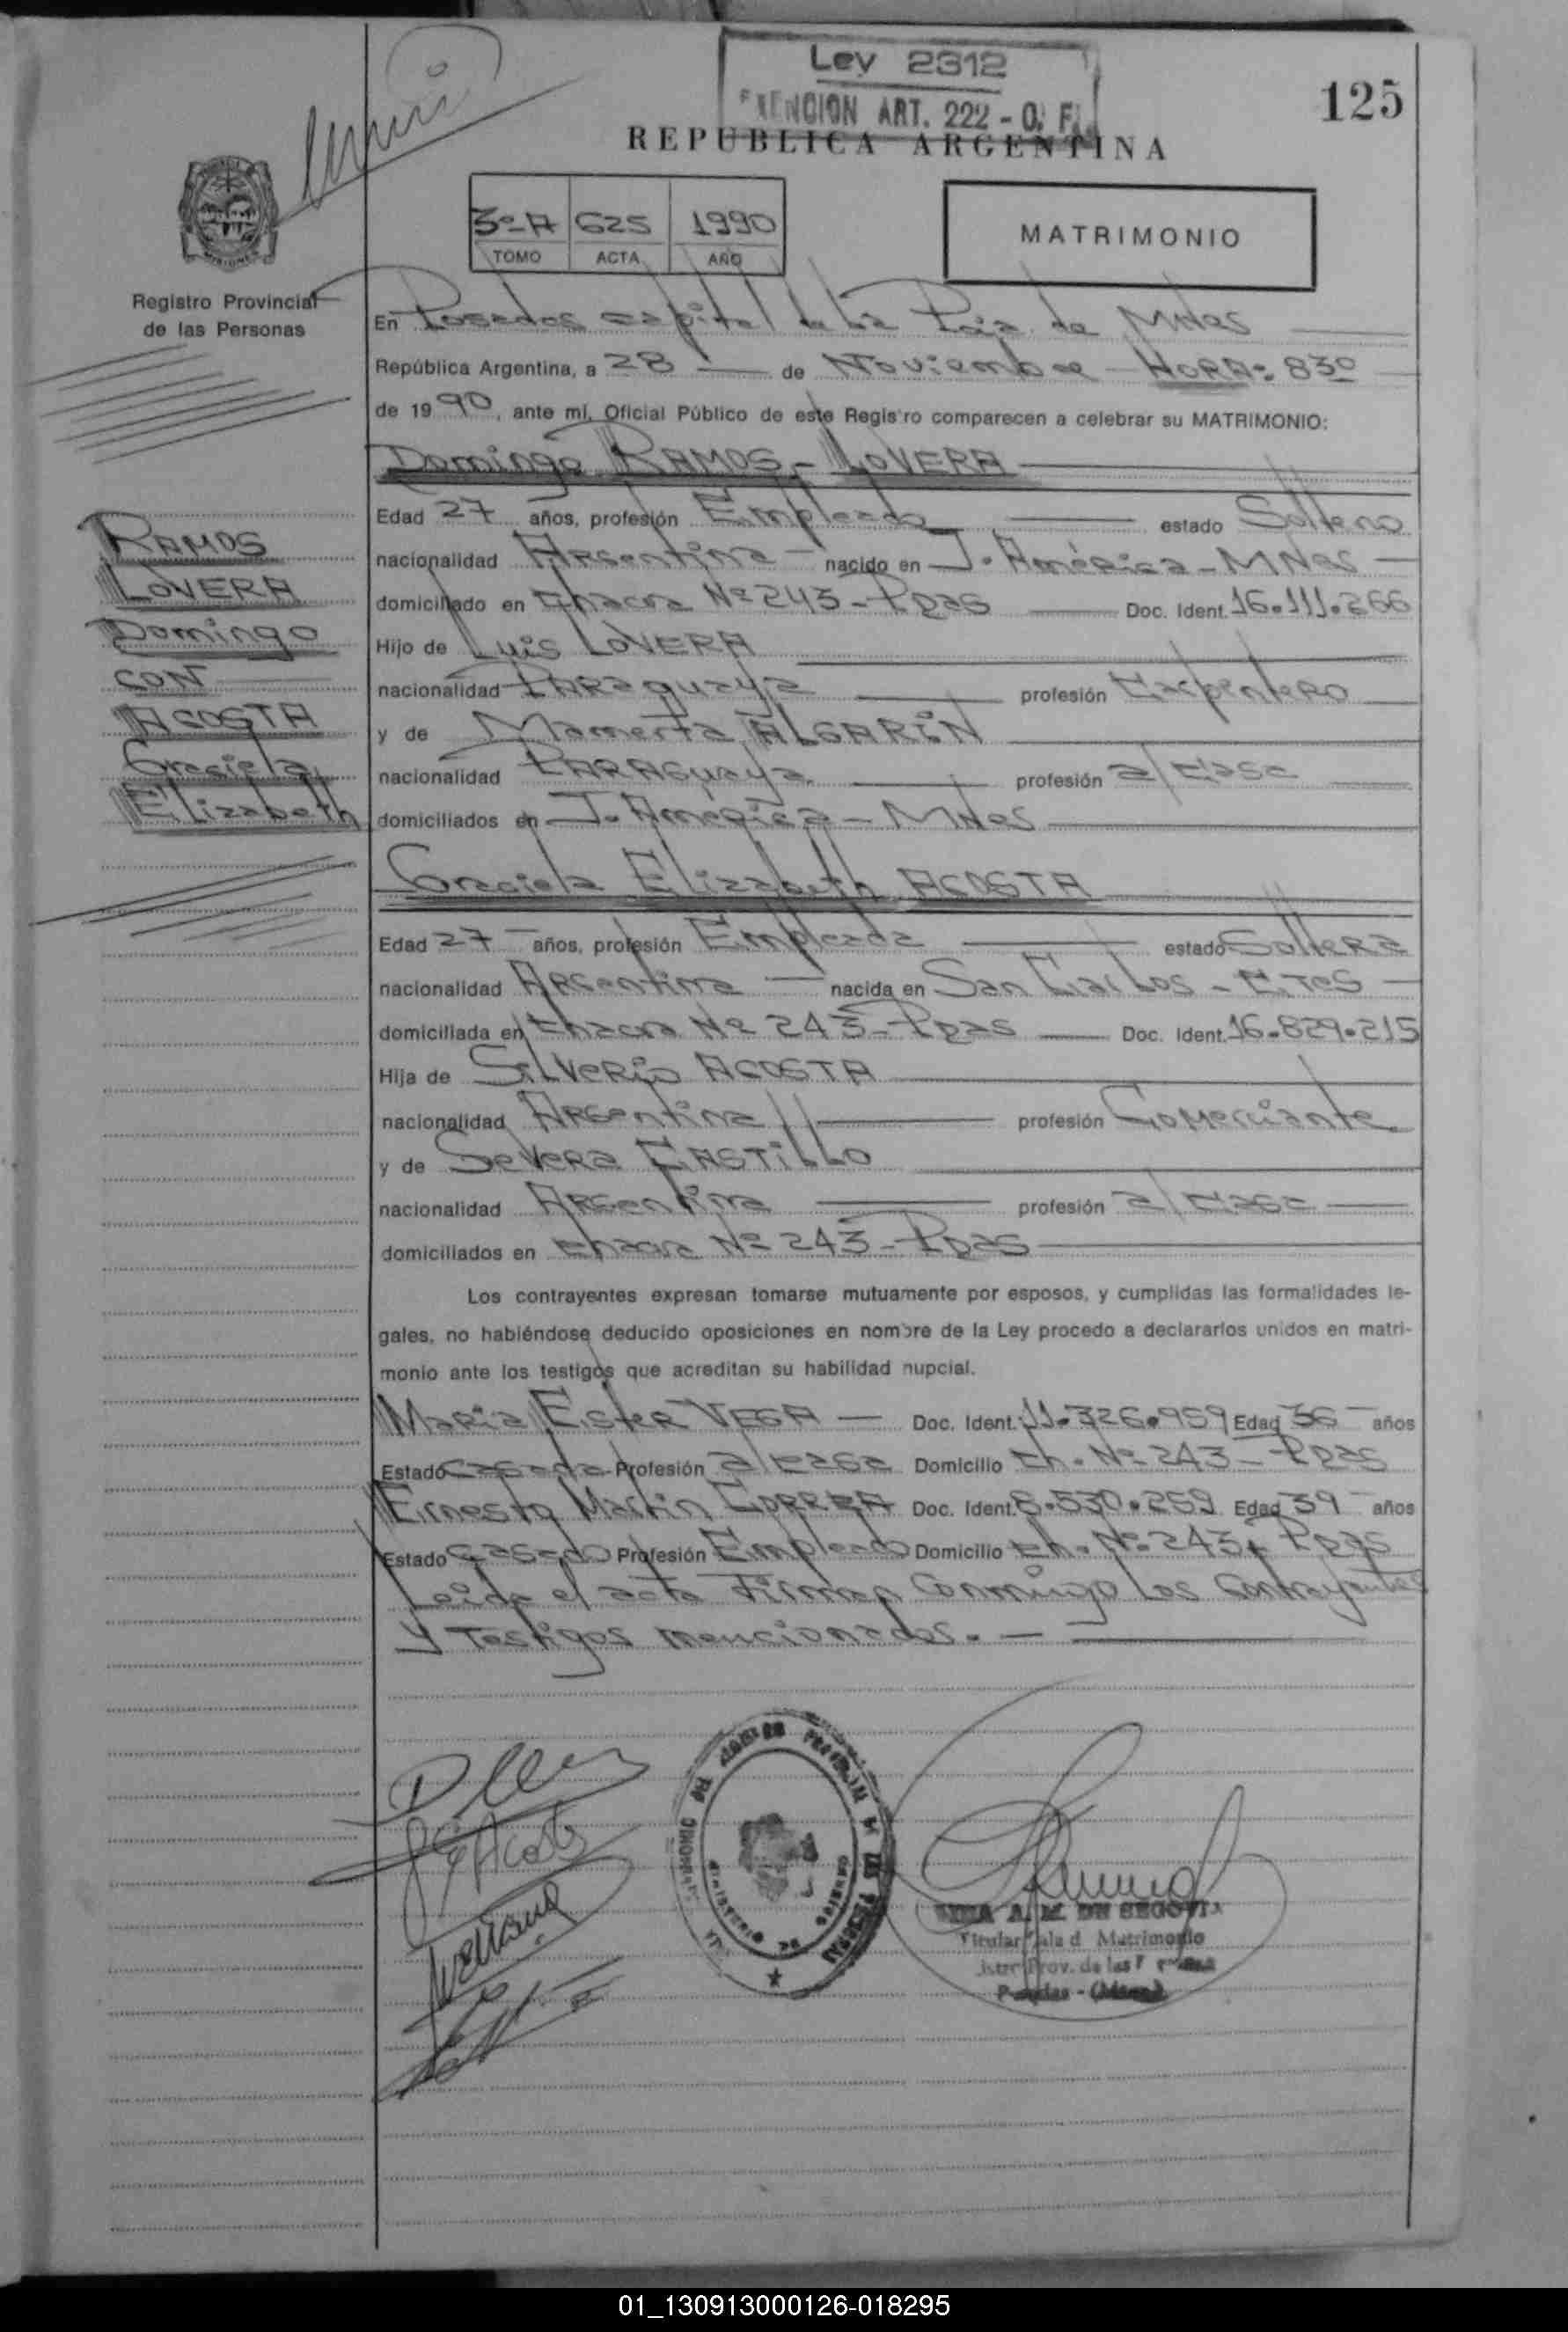 Ley 2312
EXENCION ART. 222 - O. F.
125
REPUBLICA ARGENTINA
3º-A 625 1990
TOMO ACTA AÑO
MATRIMONIO
Registro Provincial
de las Personas
En Posadas capital de la Pcia de MNes
República Argentina, a 28 de Noviembre - HORA: 830
de 1990, ante mí, Oficial Público de este Registro comparecen a celebrar su MATRIMONIO:
Domingo RAMOS - LOVERA
Edad 27 años, profesión Empleado estado Soltero
nacionalidad Argentina - nacido en J. América - MNes -
domiciliado en Chacra Nº 243 - Pdas Doc. Ident. 16.111.266
Hijo de Luis LOVERA
nacionalidad PARAguaya profesión Carpintero
y de Mamerta ALGARIN
nacionalidad PARAGuaya profesión a/casa
domiciliados en J. América - MNes
RAMOS
LOVERA
Domingo
CON
ACOSTA
Graciela
Elizabeth
Graciela Elizabeth ACOSTA
Edad 27 años, profesión Empleada estado Soltera
nacionalidad Argentina - nacida en San Carlos - CTes -
domiciliada en Chacra Nº 243 - Pdas Doc. Ident. 16.829.215
Hija de SILVERIO ACOSTA
nacionalidad Argentina profesión Comerciante
y de Severa CASTILLO
nacionalidad Argentina profesión a/casa
domiciliados en Chacra Nº 243 - Pdas
Los contrayentes expresan tomarse mutuamente por esposos, y cumplidas las formalidades le-
gales, no habiéndose deducido oposiciones en nombre de la Ley procedo a declararlos unidos en matri-
monio ante los testigos que acreditan su habilidad nupcial.
Maria Ester VEGA - Doc. Ident. 11.326.959 Edad 36 años
Estado Casada Profesión a/casa Domicilio Ch. Nº 243 - Pdas
Ernesto Martin CORREA Doc. Ident. 8.530.259 Edad 39 años
Estado Casado Profesión Empleado Domicilio Ch. Nº 243 - Pdas
Leida el acta Firman Conmigo Los Contrayentes
Y Testigos mencionados. -
A. M. DE SEGOVIA
Titular Sala d Matrimonio
Prov. de las
Posadas - (Mnes)
01_130913000126-018295